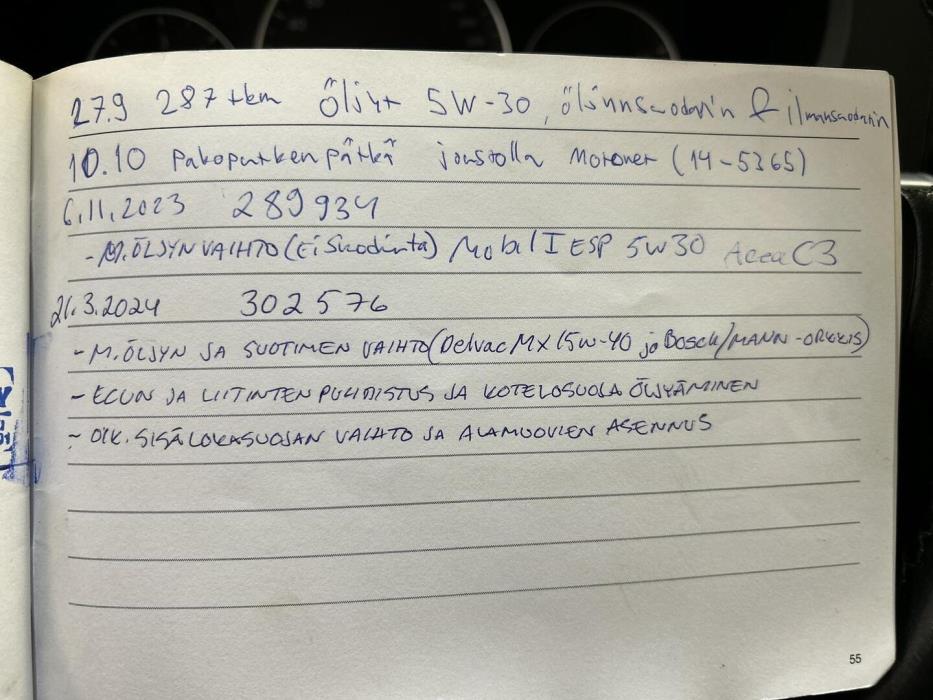 27.9 287 tkm Öljyt 5W-30, öljynsuodatin & ilmansuodatin
10.10 Pakoputken pätkä joustolla Motonet (14-5365)
6.11.2023 289934
- M.ÖLJYN VAIHTO (Ei Suodinta) Mobil 1 ESP 5W30 Acea C3
21.3.2024 302576
- M.ÖLJYN JA SUOTIMEN VAIHTO (Delvac MX 15W-40 ja Bosch/MANN-
- ECUN JA LIITINTEN PUHDISTUS JA KOTELOSUOJA ÖLJYÄMINEN
- OIK. SISÄLOKASUOJAN VAIHTO JA ALAMUOVIEN ASENNUS
55